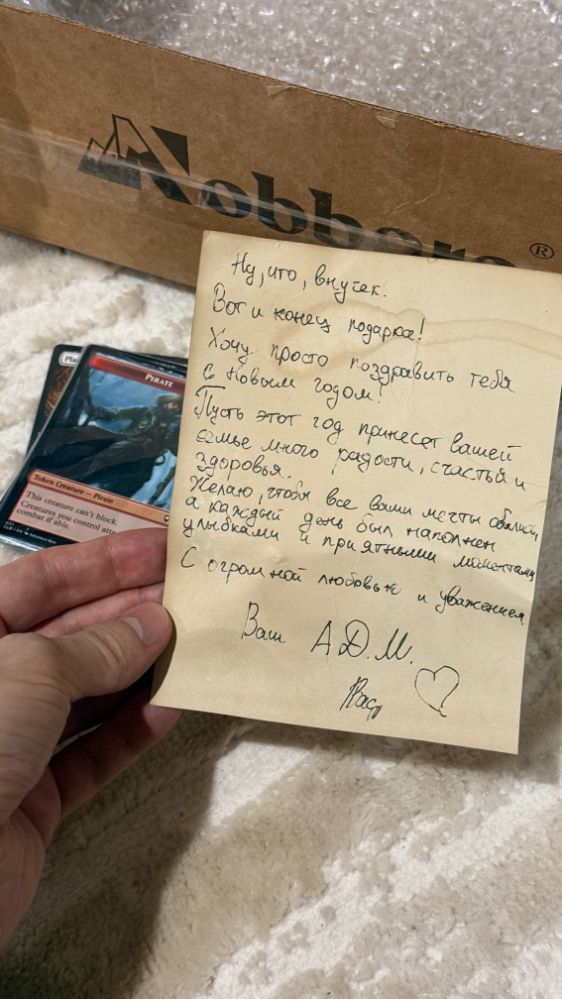 Nobbaro®
Ну, что, внучек.
Вот и конец подарка!
Хочу просто поздравить тебя
с Новым годом!
Пусть этот год принесет вашей
семье много радости, счастья и
здоровья.
Желаю, чтобы все ваши мечты сбылись,
а каждый день был наполнен
улыбками и приятными моментами
С огромной любовью и уважением
Ваш А.Д.М.
PIRATE
Token Creature — Pirate
This creature can't block.
Creatures you control
combat if able.